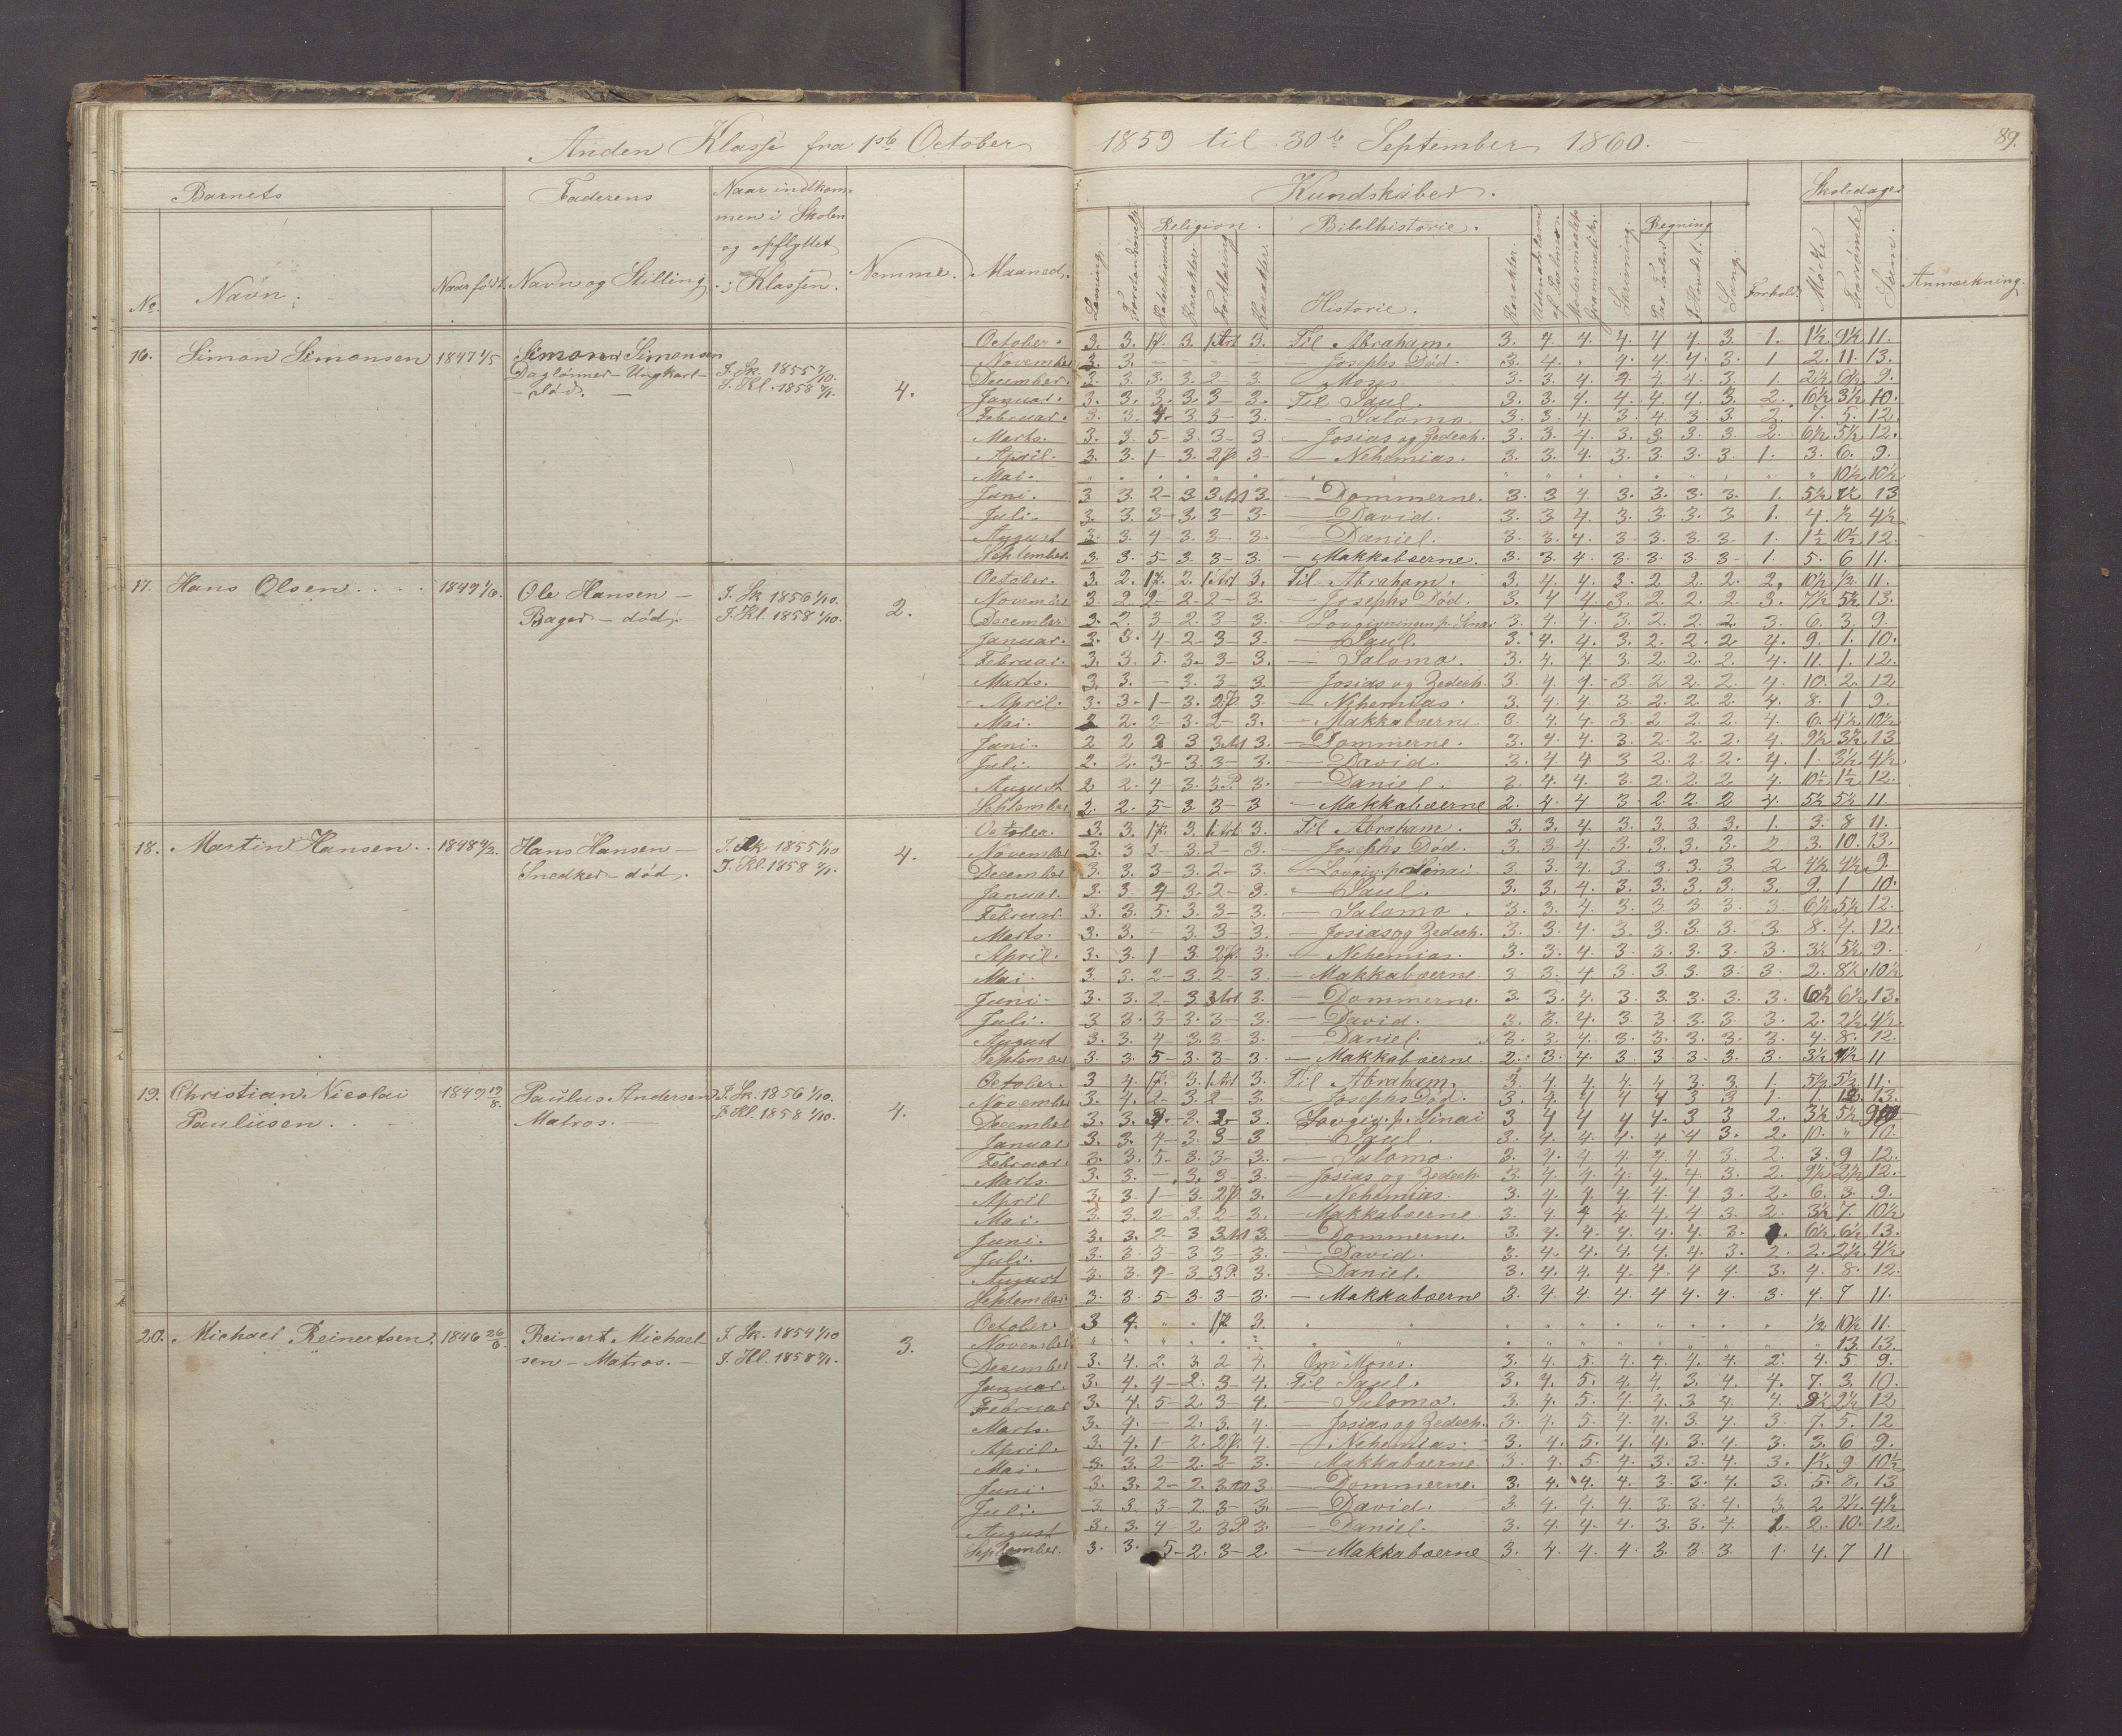 Anden Klasse fra 1ste October 1859 til 30te September 1860. 89.
Barnets Faderens Naar indkom-
men i Skolen
og opflyttet
i Klassen. Nemme. Maaned. Kundskaber. Skoledage
No. Navn. Naar født. Navn og Stilling
Læsning. Religion. Bibelhistorie. Regning
Historie. Karakter. Skrivning. Sang. Forhold. Mødte Forsømte Sum. Anmærkning.
16. Simon Simonsen 1847 1/5 Simon Simonsen
Daglønner - Ungkarl -
- død. -
I. Sk. 1855
I. Kl. 1858
4.
October. 3. 3. 3. 3. Til Abraham. 3. 4. 4. 4. 4. 4. 3. 1. 1½ 9½ 11.
November 3. 3. - Josephs Død. 3. 4. 4. 4. 4. 3. 1 2. 11. 13.
December. 3. 3. 3. 3. 2 - 3 Moses 3. 3. 4. 4. 4. 4. 3. 1. 2½ 6½ 9.
Januar. 3. 3. 3. 3. 3 - 3. Til Saul. 3. 3. 4. 4. 4. 4. 3. 2. 6½ 3½ 10.
Februar. 3. 3. 4 - 3 3 - 3. - Salomo. 3. 3. 4. 3. 4. 3. 3. 2. 7. 5. 12.
Marts. 3. 3. 5 - 3. 3 - 3. - Josias og Zedech. 3. 3. 4. 3. 3. 3. 3. 2. 6½ 5½ 12.
April. 3. 3. 1 - 3. 2 p. 3 - - Nehemias. 3. 3. 4. 3. 3. 3. 3. 1. 3. 6. 9.
Mai. " 10½ 10½
Juni. 3 3. 2 - 3 3 Art 3. - Dommerne. 3. 3 4. 3. 3. 3. 3. 1. 5½ 7½ 13
Juli. 3. 3. 3 - 3. 3 - 3. - David. 3. 3 4. 3. 3. 3. 3 1. 4. ½ 4½
August 3. 3. 4 - 3. 3 - 3. - Daniel. 3. 3. 4. 3. 3. 3. 3. 1. 1½ 10½ 12.
September. 3 3. 5 - 3. 3 - 3. - Makkabæerne. 3. 3. 4. 3. 3. 3. 3 - 1. 5. 6 11.
17. Hans Olsen . . . . 1849 1/6. Ole Hansen -
Bager - død.
I. Sk 1856 1/10.
I. Kl. 1858 1/10.
2.
October. 3. 2. 2. 3. Til Abraham. 3. 4. 4. 3. 2. 2. 2. 2. 10½ ½ 11.
November 3. 2. 2 - 2 - 2 - 3. - Josephs Død. 3. 4 4. 3. 2. 2. 2. 3. 7½ 5½ 13.
December 3. 2. 3 - 2. 3 - 3. - Lovgivningen p. Sinai 3. 4. 4. 3. 2. 2. 2. 3. 6. 3. 9.
Januar. 3. 3. 4 - 2 - 3 - 3 - Saul. 3. 4. 4. 3. 2. 2. 2 4. 9. 1. 10.
Februar. 3. 3. 5. 3. 3 - 3. - Salomo. 3. 4. 4. 3. 2. 2. 2. 4. 11. 1. 12.
Marts. 3 3. - 3. 3 - 3. - Josias og Zedech. 3. 4 4. 3. 2 2. 2. 4. 10. 2. 12
April. 3. 3 - 1 - 3. 2 p. 3 - Nehemias. 3. 4. 4 3. 2. 2. 2. 4. 8. 1 9.
Mai. 2 2. 2 - 3. 2 - 3. - Makkabæerne 3. 4. 4. 3. 2 2. 2. 4. 6. 4½ 10½
Juni. 2 2 2 3 3 Art 3. - Dommerne. 3. 4. 4. 3. 2. 2. 2. 4. 9½ 3½ 13
Juli. 2. 2. 3 - 3. 3 - 3. - David. 3. 4. 4. 3 2. 2. 2. 4. 1. 3½ 4½
August 2 2. 4 3. 3. P 3. - Daniel. 3. 4. 4. 3. 2. 2. 2 4. 10½ 1½ 12.
September 2. 2. 5 - 3 3 - 3 - Makkabæerne 2. 4. 4. 3. 2. 2. 2 4. 5½ 5½ 11.
18. Martin Hansen . . 1848 Hans Hansen -
Snedker - død.
I. Sk 1855 1/10
I. Kl. 1858
4.
October. 3. 3. 3. 3. Til Abraham. 3. 3. 4. 3. 3. 3. 3. 1. 3. 8 11.
November 3. 3 2 - 3. 2 - 3. - Josephs Død. 3. 3. 4. 3. 3. 3. 3. 2. 3. 10. 13.
December 3. 3. 3 - 3. 2 - 3. - Lovgiv. p. Sinai 3 3. 4. 3. 3. 3. 3. 2 4½ 4½ 9.
Januar. 3 3. 4 3. 2 - 3. - Saul. 3. 3. 4. 3. 3. 3. 3. 3. 9. 1 10.
Februar. 3. 3. 5. 3. 3 - 3. - Salomo. 3. 3. 4. 3. 3. 3. 3. 3. 6½ 5½ 12.
Marts. 3. 3. - 3. 3 - 3. - Josias og Zedech. 3. 3. 4. 3. 3. 3. 3. 3 8. 4. 12.
April. 3. 3. 1 - 3. 2 p. 3. - Nehemias. 3. 3. 4. 3. 3. 3. 3. 3. 3½ 5½ 9.
Mai. 3 3. 2 - 3. 2 - 3 - Makkabæerne 3 3. 4 3. 3. 3. 3. 3. 2. 8½ 10½
Juni. 3. 3. 2 - 3. 3 Art 3. - Dommerne. 3. 3. 4. 3. 3. 3. 3. 3. 6½ 6½ 13.
Juli. 3 3. 3 - 3. 3 - 3. - David. 3. 3. 4. 3. 3. 3. 3. 3. 2. 2½ 4½
August 3. 3. 4 - 3. 3 - 3. - Daniel. 3. 3. 4. 3. 3. 3. 3. 3. 4. 8. 12.
September 3. 3. 5 - 3. 3 - 3. - Makkabæerne 2. 3. 4. 3 3 3. 3. 3. 3½ 7½ 11
19. Christian Nicolai
Paulusen . . .
1849 19/8. Paulus Andersen
Matros. -
I. Sk. 1856 1/10.
I. Kl. 1858 1/10.
4.
October. 3 4. 3. 3. Til Abraham. 3. 4. 4. 4. 4 3. 3. 1. 5½ 5½ 11.
November 3. 4. 2 - 3. 2 - 3. - Josephs Død. 3. 4. 4 4 4 3 3 1. 1. 12. 13.
December 3. 3. 3 - 3. 2 - 3. Lovgiv. p. Sinai 3 4 4 4 4. 3 3 2. 3½ 5½ 9
Januar 3. 3. 4 - 3. 3 - 3 - Saul. 3. 4. 4. 4. 4 4 3. 2. 10. " 10.
Februar. 3. 3. 5 - 3. 3 - 3. - Salomo. 3. 4. 4. 4. 4. 4 3. 2. 3. 9 12.
Marts. 3. 3. - 3. 3 - 3. - Josias og Zedech. 3. 4. 4. 4. 4. 4. 3. 2. 9½ 2½ 12.
April 3. 3. 1 - 3. 2 p. 3. - Nehemias. 3. 4. 4. 4. 4. 4 3. 2. 6. 3. 9.
Mai. 3. 3. 2 - 3. 2 - 3. - Makkabæerne 3. 4 4 4. 4. 4 3. 2. 3½ 7. 10½
Juni. 3. 3. 2 - 3 3 Art 3. - Dommerne. 3. 4. 4. 4. 4. 4. 3. 6½ 6½ 13.
Juli. 3 3. 3 - 3 3 - 3. - David. 3. 4. 4. 4. 4. 4. 3. 2. 2. 2½ 4½
August 3. 3. 4 - 3 3 P. 3. - Daniel. 3. 4. 4. 4. 4. 4 4. 3. 4. 8. 12.
September. 3. 3. 5 - 3. 3 - 3. - Makkabæerne 3. 4. 4. 4. 4 4. 4. 3. 4. 7 11.
20. Michael Reinertsen. 1846 26/6. Reinert Michael-
sen - Matros. -
I. Sk. 1854 1/10
I. Kl. 1858
3.
October. 3 4. " " 3. ½ 10½ 11.
November " 13. 13.
December 3. 4. 2. 3. 2 4. Om Moses. 3. 4. 5. 4. 4. 4. 4. 2. 4. 5 9.
Januar. 3. 4. 4 - 2. 3 - 4. Til Saul. 3. 4. 5. 4. 4. 3. 4. 4. 7. 3. 10.
Februar 3. 4. 5 - 2. 3 - 4. - Salomo. 3. 4. 5. 4. 4. 3 4. 4. 9½ 2½ 12
Marts. 3. 4. - 2. 3. 4. - Josias og Zedech. 3. 4. 5. 4. 4. 3. 4. 3. 7. 5. 12
April. 3. 4. 1 - 2. 2 p. 4. - Nehemias. 3. 4. 5. 4. 4. 3. 4. 3. 3. 6 9.
Mai. 3. 3. 2 - 2. 2 - 3. - Makkabæerne 3. 4. 5. 4. 3. 3. 4. 3. 1½ 9 10½
Juni. 3. 3. 2 - 2. 3 Art 3. - Dommerne. 3. 4. 4. 4. 3. 3. 4. 3. 5. 8. 13
Juli. 3. 3. 3 - 2. 3 - 3. - David. 3. 4. 4. 4. 3. 3. 4. 3. 2. 2½ 4½
August 3. 3. 4 - 2. 3 P 3. - Daniel. 3. 4. 4 - 4. 3. 3. 4. 1. 2. 10. 12.
September. 3. 3. 5 - 2. 3 - 2. - Makkabæerne 3. 4. 4. 4. 3. 3. 3. 1. 4. 7 11